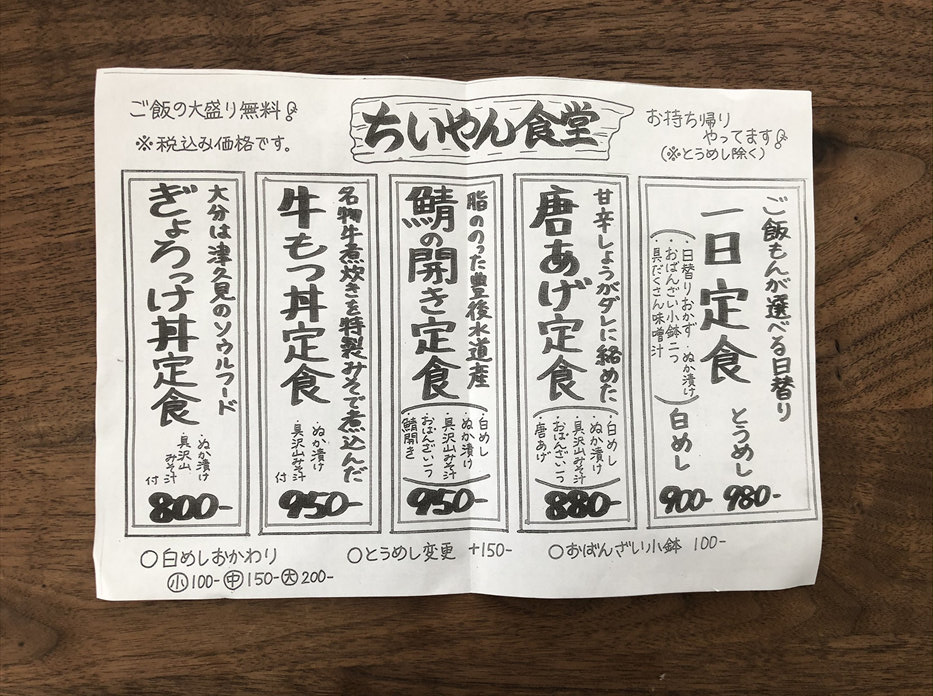 ご飯の大盛り無料
※税込み価格です。
ちいやん食堂
お持ち帰り
やってます
(※とうめし除く)
ご飯もんが選べる日替り
一日定食
・日替りおかず ・ぬか漬け
・おばんざい小鉢二つ
・具だくさん味噌汁
とうめし
980-
白めし
900-
甘辛しょうがダレに絡めた
唐あげ定食
・白めし
・ぬか漬け
・具沢山みそ汁
・おばんざい一つ
・唐あげ
880-
脂ののった豊後水道産
鯖の開き定食
・白めし
・ぬか漬け
・具沢山みそ汁
・おばんざい一つ
・鯖開き
950-
名物牛煮炊きを特製みそで煮込んだ
牛もつ丼定食
・ぬか漬け
・具沢山みそ汁
付
950-
大分は津久見のソウルフード
ぎょろっけ丼定食
・ぬか漬け
・具沢山
みそ汁
付
800-
○白めしおかわり
小100- 中150- 大200-
○とうめし変更 +150-
○おばんざい小鉢 100-